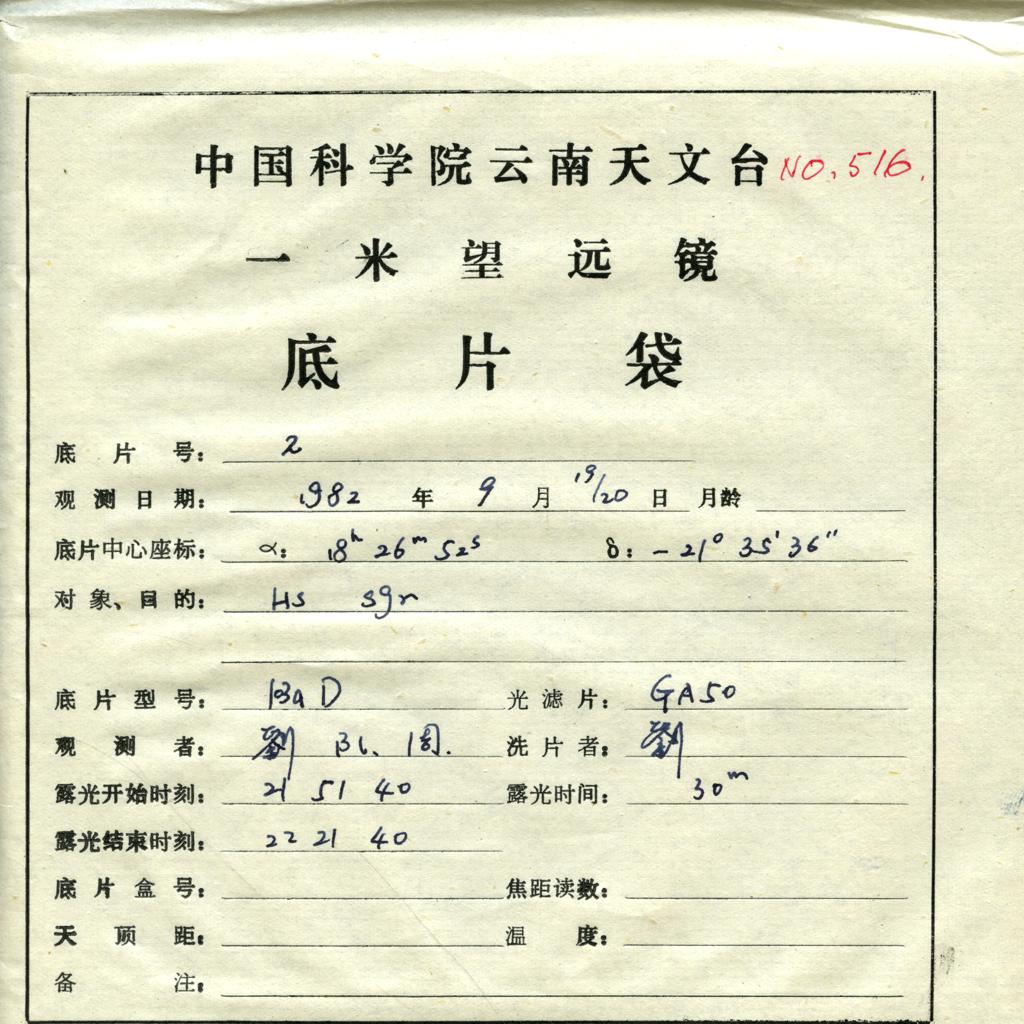 中国科学院云南天文台 NO.516.
一米望远镜
底片袋
底片号： 2
观测日期： 1982 年 9 月 19/20 日 月龄
底片中心座标： α： 18h 26m 52s δ： -21° 35' 36"
对象、目的： HS sgr
底片型号： IIa D 光滤片： GA50
观测者： 劉 周. 洗片者： 劉
露光开始时刻： 21 51 40 露光时间： 30m
露光结束时刻： 22 21 40
底片盒号： 焦距读数：
天顶距： 温度：
备注：